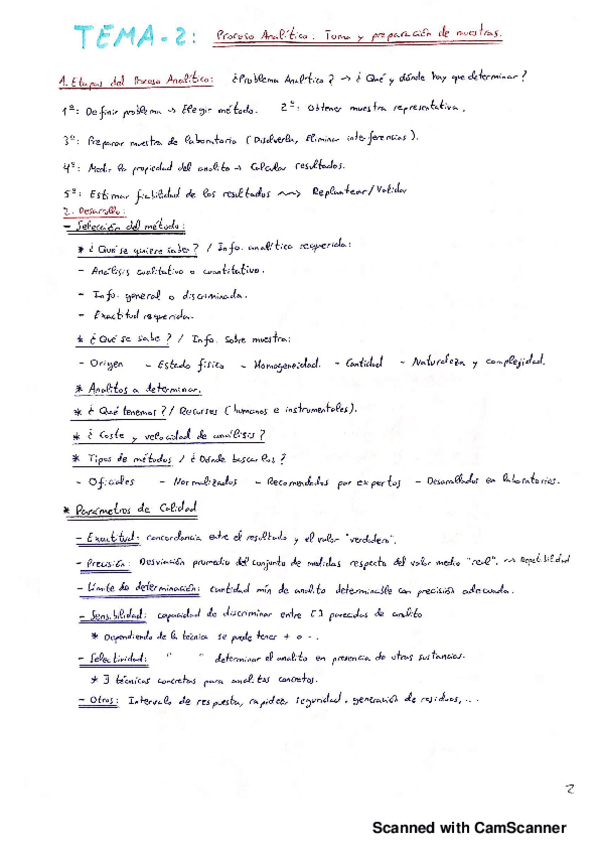 TEMA-2: Proceso Analítico: Toma y preparación de muestras.
1. Etapas del Proceso Analítico: ¿Problema Analítico? → ¿Qué y dónde hay que determinar?
1º: Definir problema → Elegir método. 2º: Obtener muestra representativa.
3º: Preparar muestra de laboratorio (Disolverla, Eliminar interferencias).
4º: Medir la propiedad del analito → Calcular resultados.
5º: Estimar fiabilidad de los resultados → Replantear/Validar
2. Desarrollo:
- Selección del método:
* ¿Qué se quiere saber? / Info. analítica requerida:
- Análisis cualitativo o cuantitativo.
- Info. general o discriminada.
- Exactitud requerida.
* ¿Qué se sabe? / Info. sobre muestra:
- Origen - Estado físico - Homogeneidad. - Cantidad - Naturaleza y complejidad.
* Analitos a determinar.
* ¿Qué tenemos? / Recursos (humanos e instrumentales).
* ¿Coste y velocidad de análisis?
* Tipos de métodos / ¿Dónde buscarlos?
- Oficiales - Normalizados - Recomendados por expertos - Desarrollados en laboratorios.
* Parámetros de Calidad
- Exactitud: concordancia entre el resultado y el valor "verdadero".
- Precisión: Desviación promedio del conjunto de medidas respecto del valor medio "real". → Repetibilidad
- Límite de determinación: cantidad mín de analito determinable con precisión adecuada.
- Sensibilidad: capacidad de discriminar entre [ ] parecidas de analito
* Dependiendo de la técnica se puede tener + o -.
- Selectividad: " " determinar el analito en presencia de otras sustancias.
* ∃ técnicas concretas para analitos concretos.
- Otros: Intervalo de respuesta, rapidez, seguridad, generación de residuos, ...
2
Scanned with CamScanner